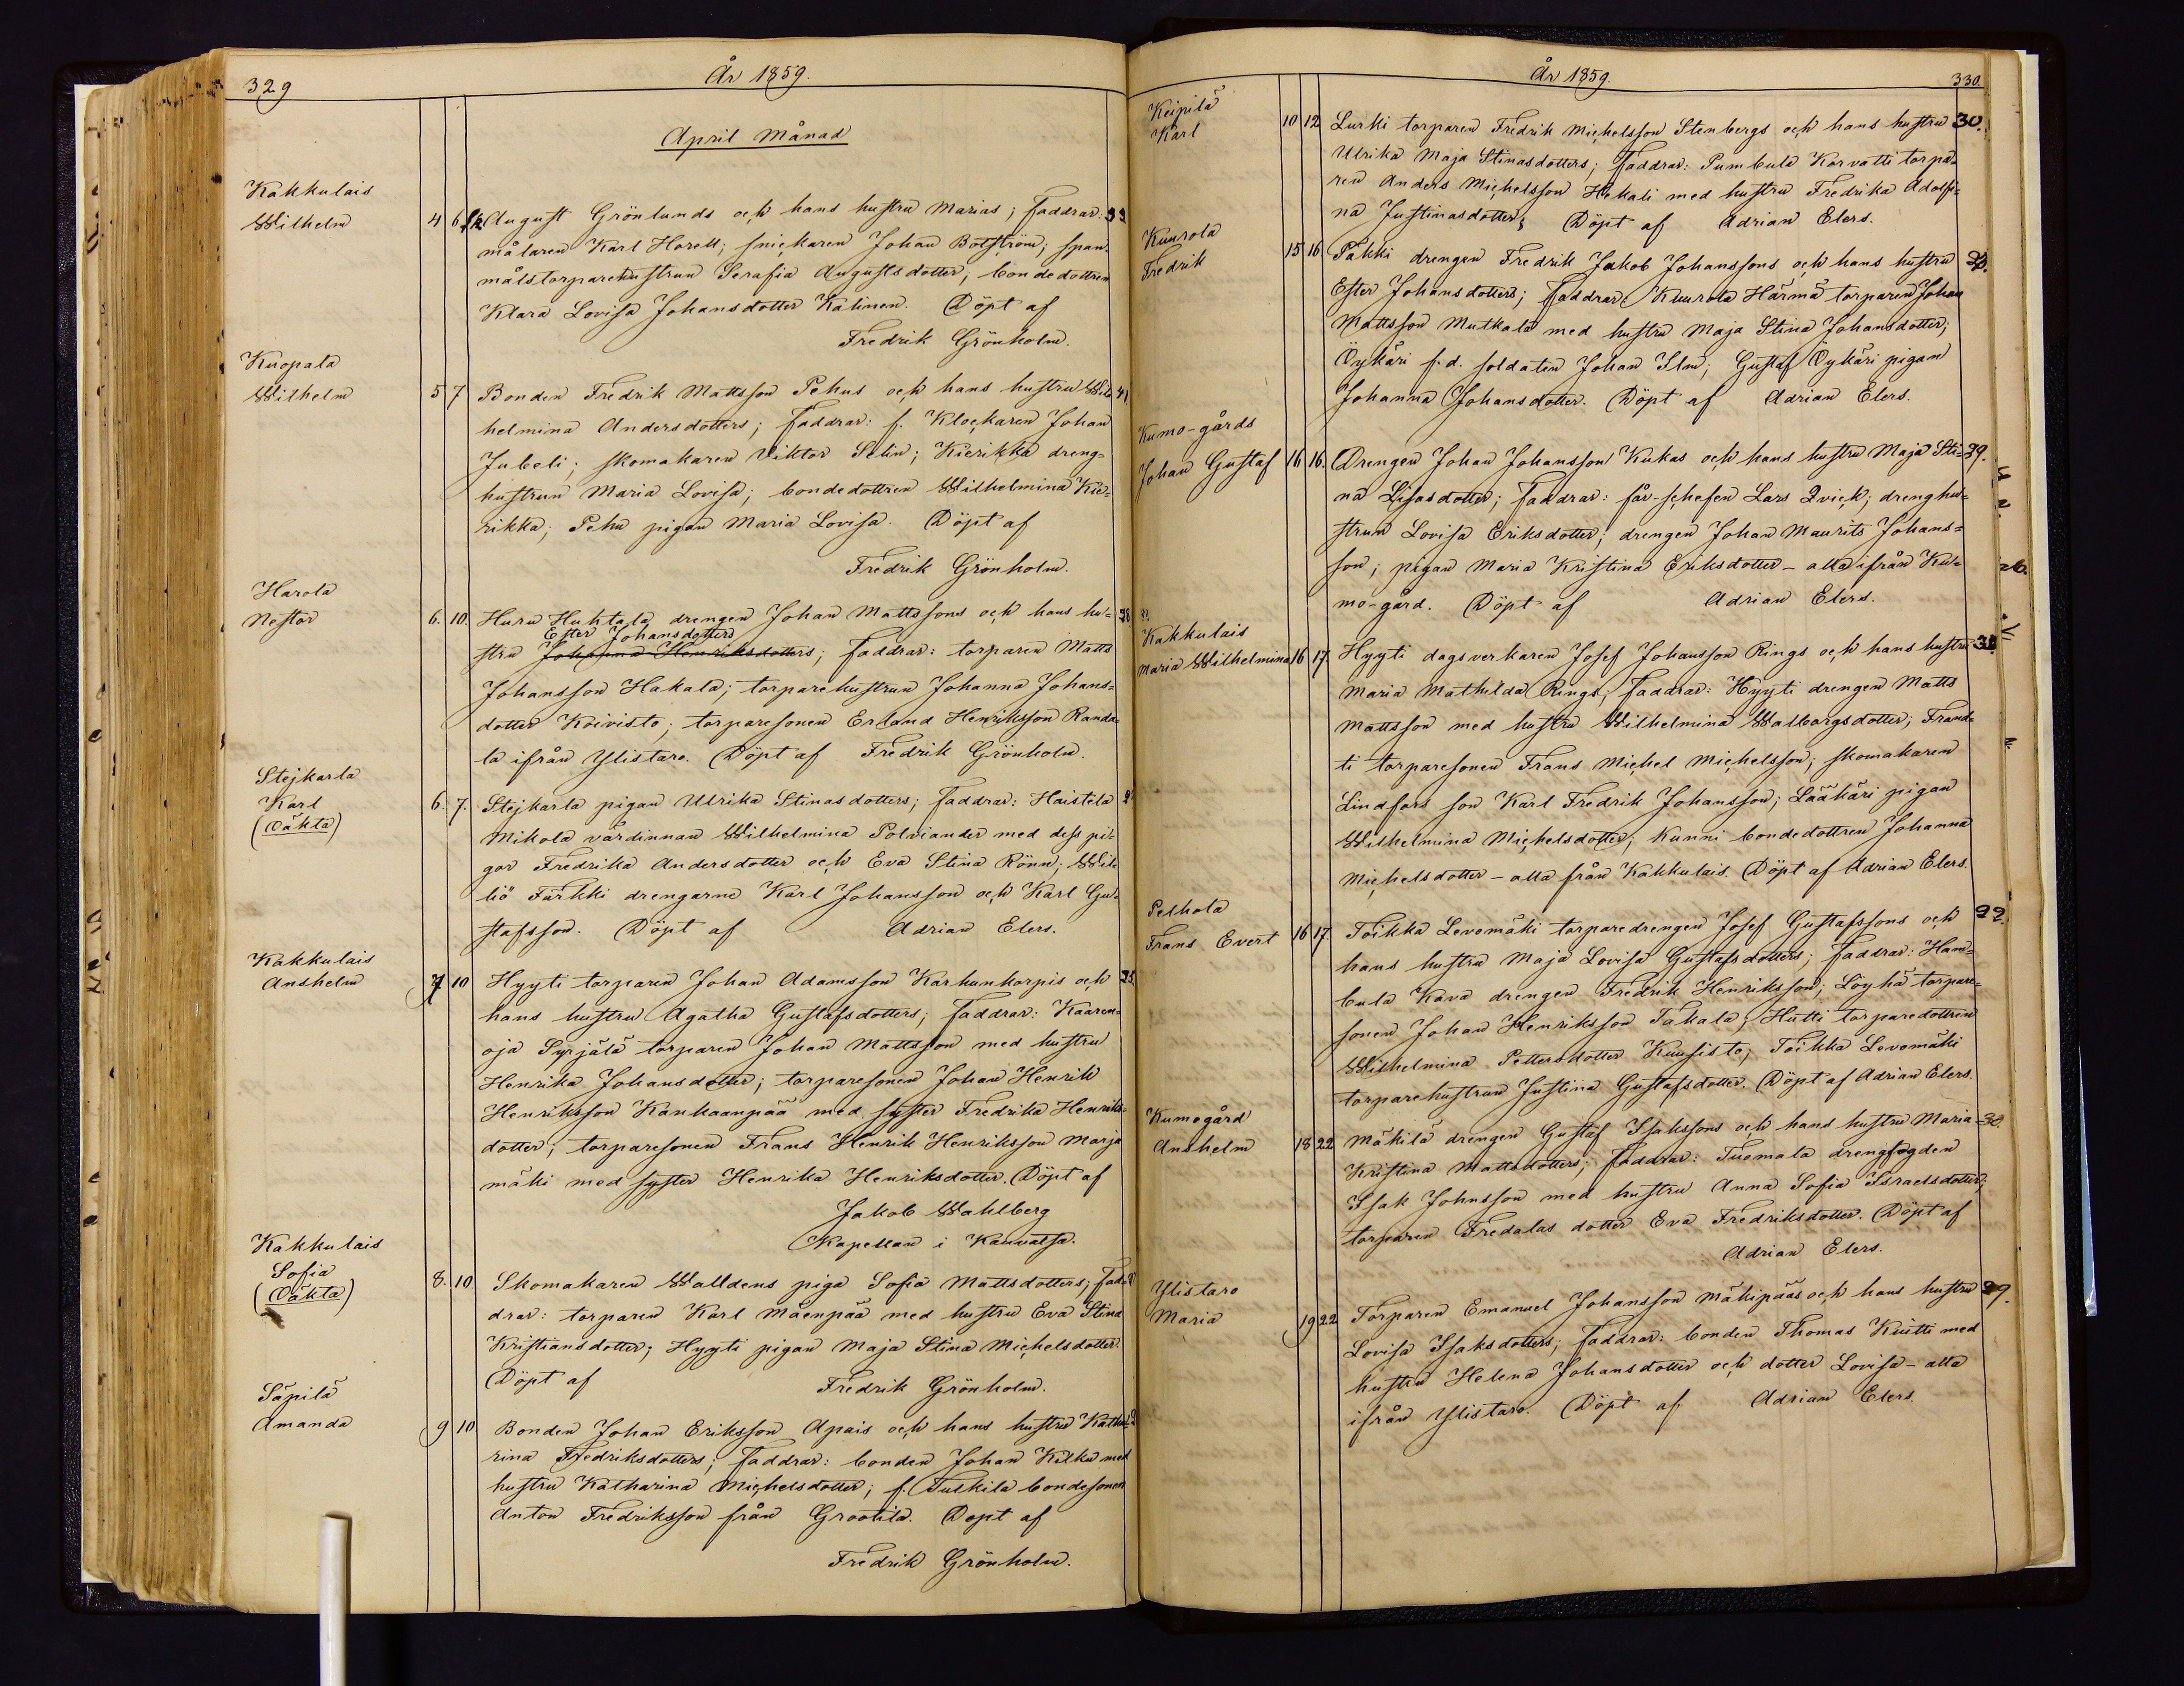 329
År 1859.
April Månad
Kakkulais
Wilhelm 4 6 August Grönlunds och hans hustru Marias; faddrar: 33
målaren Karl Horell; snickaren Johan Botström; span-
målstorparehustrun Serafia Augustsdotter; bondedottren
Klara Lovisa Johansdotter Kalinen. Döpt af
Fredrik Grönholm.
Kuopala
Wilhelm 5 7 Bonden Fredrik Mattsson Pehus och hans hustru Wil- 41
helmina Andersdotters; faddrar: f. Klockaren Johan
Jubeli; skomakaren Viktor Selin; Kierikka dreng-
hustrun Maria Lovisa; bondedottren Wilhelmina Kie-
rikka; Pehu pigan Maria Lovisa. Döpt af
Fredrik Grönholm.
Harola
Nestor 6. 10. Huru Huhtala drengen Johan Mattssons och hans hu- 38
Ester Johansdotters
stru Johanna Henriksdotters; faddrar: torparen Matts
Johansson Hakala; torparehustrun Johanna Johans-
dotter Koivisto; torparesonen Erland Henriksson Randa-
la ifrån Ylistaro. Döpt af Fredrik Grönholm.
Stejkarla
Karl 6. 7. Stejkarla pigan Ulrika Stinasdotters; faddrar: Haistela
(Oäkta)
Mikola värdinnan Wilhelmina Polviander med dess pi-
gor Fredrika Andersdotter och Eva Stina Rönn; Wil-
liö Färkki drengarne Karl Johansson och Karl Gu-
stafsson. Döpt af Adrian Elers.
Kakkulais
Anshelm 7 10 Hyyti torparen Johan Adamsson Karhunkorpis och 25.
hans hustru Agatha Gustafsdotters; faddrar: Kaaren-
oja Syrjälä torparen Johan Mattsson med hustru
Henrika Johansdotter; torparesonen Johan Henrik
Henriksson Kankaanpää med syster Fredrika Henriks-
dotter; torparesonen Frans Henrik Henriksson Marja
mäki med syster Henrika Henriksdotter. Döpt af
Jakob Wahlberg
Kapellan i Kauvatsa.
Kakkulais
Sofia 8. 10 Skomakaren Walldens piga Sofia Mattsdotters; fad-
(Oäkta)
drar: torparen Karl Mäenpää med hustru Eva Stina
Kristiansdotter; Hyyti pigan Maja Stina Michelsdotter.
Döpt af Fredrik Grönholm.
Säpilä
Amanda 9 10. Bonden Johan Eriksson Apais och hans hustru Katha-
rina Fredriksdotters; faddrar: bonden Johan Kilku med
hustru Katharina Michelsdotter; f. Tulkila bondesonen
Anton Fredriksson från Grootila. Döpt af
Fredrik Grönholm.
År 1859.
330.
Keipilä
Karl 10 12 Lurki torparen Fredrik Michelsson Stenbergs och hans hustru 30.
Ulrika Maja Stinasdotters; faddrar: Pumbula Korvatti torpa-
ren Anders Michelsson Hekali med hustru Fredrika Adolfi-
na Justinasdotter; Döpt af Adrian Elers.
Kuurola
Fredrik 15 16 Päkki drengen Fredrik Jakob Johanssons och hans hustru
Ester Johansdotters; faddrar: Kuurola Härmä torparen Johan
Mattsson Mutkala med hustru Maja Stina Johansdotter;
Öykäri f.d. soldaten Johan Ilm; Gustaf Öykäri pigan
Johanna Johansdotter. Döpt af Adrian Elers.
Kumo-gårds
Johan Gustaf 16 16. Drengen Johan Johansson Kukas och hans hustru Maja Sti- 39.
na Lisasdotter; faddrar: får-schefen Lars Qvick; drenghu-
strun Lovisa Eriksdotter; drengen Johan Maurits Johans-
son; pigan Maria Kristina Eriksdotter - alla ifrån Ku-
mo-gård. Döpt af Adrian Elers.
Kakkulais
Maria Wilhelmina 16 17. Hyyti dagsverkaren Josef Johansson Rings och hans hustru 38.
Maria Mathilda Rings; faddrar: Hyyti drengen Matts
Mattsson med hustru Wilhelmina Walborgsdotter; Frant-
ti torparesonen Frans Michel Michelsson; skomakaren
Lindfors son Karl Fredrik Johansson; Lääkäri pigan
Wilhelmina Michelsdotter; Kunni bondedottren Johanna
Michelsdotter - alla från Kakkulais. Döpt af Adrian Elers.
Pelhola
Frans Evert 16 17. Toikka Levomäki torparedrengen Josef Gustafssons och 22.
hans hustru Maja Lovisa Gustafsdotters; faddrar: Ham-
bula Kava drengen Fredrik Henriksson; Löyhä torpare-
sonen Johan Henriksson Takala; Hutti torparedottren
Wilhelmina Pettersdotter Kuusisto; Toikka Levomäki
torparehustrun Justina Gustafsdotter. Döpt af Adrian Elers.
Kumogård
Anshelm 18 22 Mäkilä drengen Gustaf Isakssons och hans hustru Maria 30.
Kristina Mattsdotters; faddrar: Tuomala drengfogden
Isak Johnsson med hustru Anna Sofia Israelsdotter;
torparen Fredalas dotter Eva Fredriksdotter. Döpt af
Adrian Elers.
Ylistaro
Maria 19 22 Torparen Emanuel Johansson Mäkipääs och hans hustru 29.
Lovisa Isaksdotters; faddrar: bonden Thomas Knutti med
hustru Helena Johansdotter och dotter Lovisa - alla
ifrån Ylistaro. Döpt af Adrian Elers.